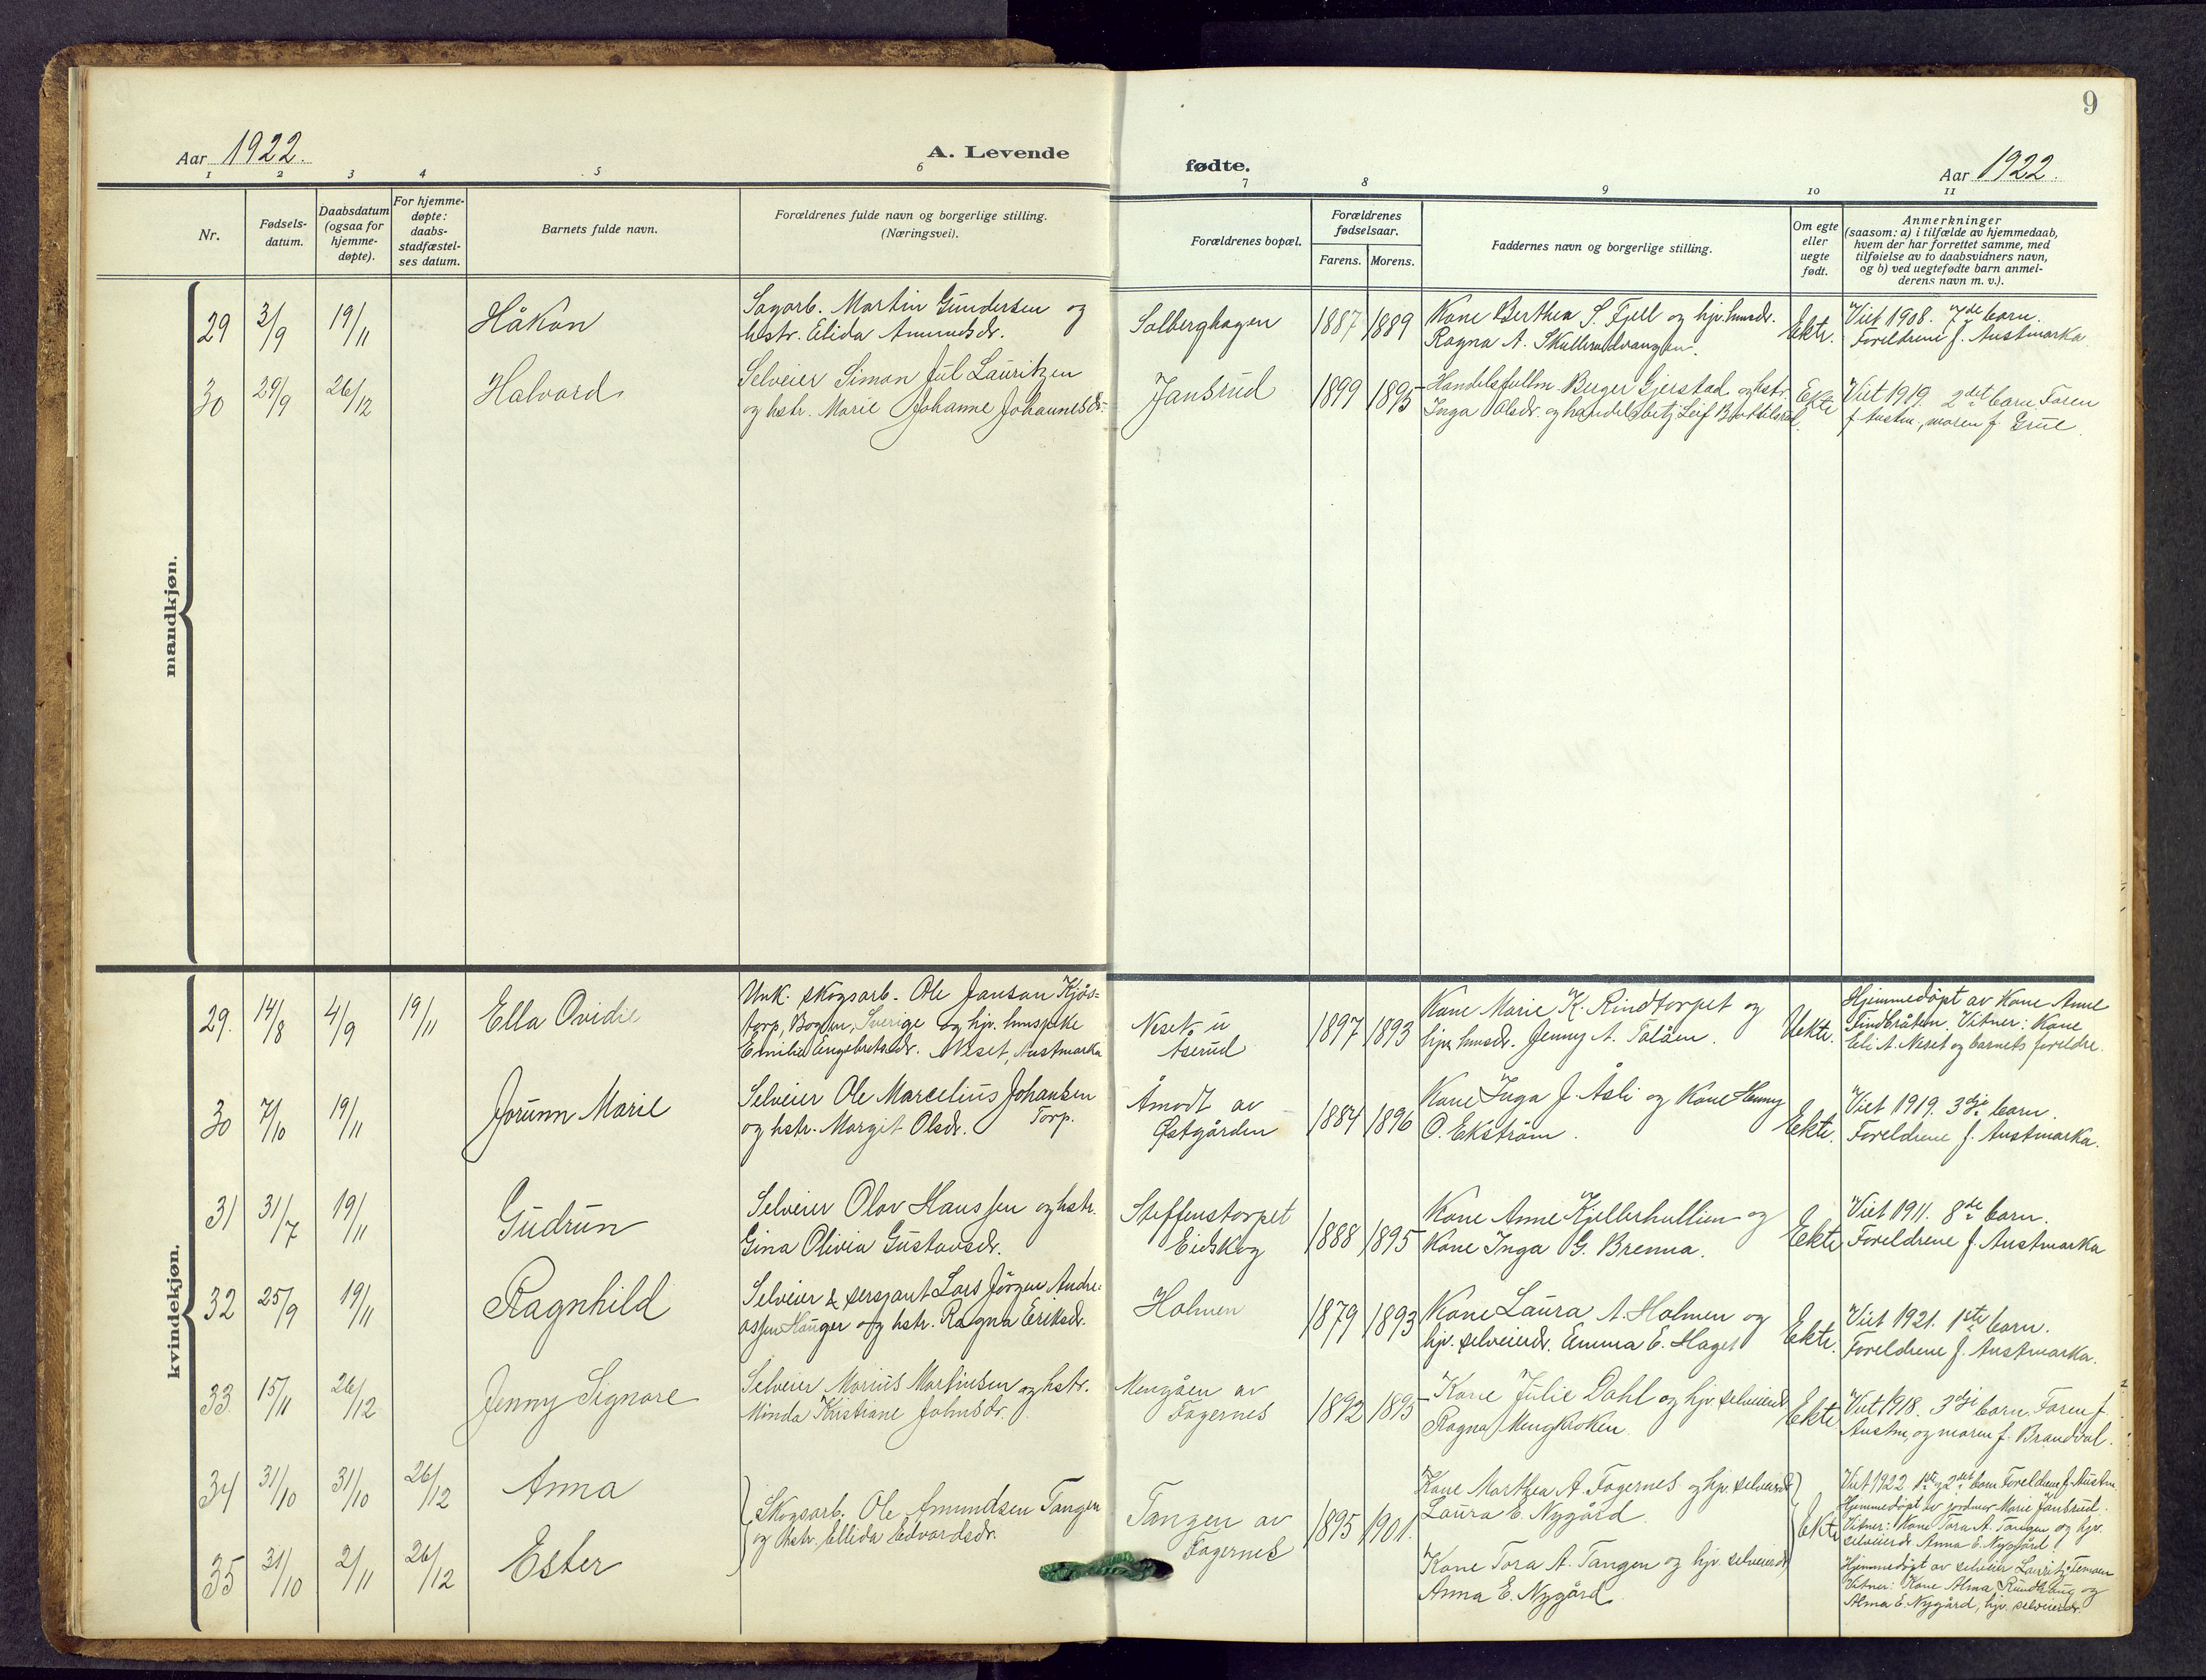 9
Aar 1922.
A. Levende
fødte.
Aar 1922.
1 2 3 4 5 6 7 8 9 10 11
Nr.
Fødsels-
datum.
Daabsdatum
(ogsaa for
hjemme-
døpte).
For hjemme-
døpte:
daabs-
stadfæstel-
ses datum.
Barnets fulde navn.
Forældrenes fulde navn og borgerlige stilling.
(Næringsvei).
Forældrenes bopæl.
Forældrenes
fødselsaar.
Farens. Morens.
Faddernes navn og borgerlige stilling.
Om egte
eller
uegte
født.
Anmerkninger
(saasom: a) i tilfælde av hjemmedaab,
hvem der har forrettet samme, med
tilføielse av to daabsvidners navn,
og b) ved uegtefødte barn anmel-
derens navn m. v.).
mandkjøn.
29 3/9 19/11 Håkon
Sagarb. Martin Gundersen og
hstr. Elida Amundsdr.
Solberghagen 1887 1889
Kone Berthea S. Fjell og hjv. husdr.
Ragna A. Skullerudvangen.
Ekte.
Viet 1908. 7de barn.
Foreldrene f. Austmarka.
30 29/9 26/12 Halvard
Selveier Simon Jul Lauritzen
og hstr. Marie Johanne Johannesdr.
Jansrud 1899 1895
Handelsfullm. Berger Gjerstad og hstr.
Inga Olsdr. og handelsbetj. Leif
Ekte
Viet 1919. 2det barn. Faren
f. Austm., moren f. Grue.
kvindekjøn.
29. 14/8 4/9 19/11 Ella Ovidie
Unk. skogsarb. Ole Janson Kjös-
torp, Bogen, Sverige og hjv.
Emilie Engebretsdr. Neset, Austmarka
Neset u
Åserud
1897 1893
Kone Marie K. Rindtorpet og
hjv. husdr. Jenny A. Talåen.
Uekte.
Hjemmedöpt av Kone Anne
Findbråten. Vitner: Kone
Eli A. Neset og barnets foreldre.
30 7/10 19/11 Jorunn Marie
Selveier Ole Marcelius Johansen
og hstr. Margit Olsdr. Torp.
Åmodt av
Østgården
1884 1896
Kone Inga J. Åsli og Kone Henny
O. Ekström.
Ekte.
Viet 1919. 3dje barn.
Foreldrene f. Austmarka.
31 31/7 19/11 Gudrun
Selveier Olav Hanssen og hstr.
Gina Olivia Gustavsdr.
Steffenstorpet
Eidskog
1888 1895
Kone Anne Kjellerhullien og
Kone Inga G. Brenna.
Ekte
Viet 1911. 8de barn.
Foreldrene f. Austmarka
32 25/9 19/11 Ragnhild
Selveier & sersjant Lars Jörgen Andre-
assen Hauger og hstr. Ragna Eriksdr.
Holmen 1879 1893
Kone Laura A. Holmen og
hjv. selveierdr. Emma E. Haget
Ekte.
Viet 1921. 1ste barn.
Foreldrene f. Austmarka.
33 15/11 26/12 Jenny Signore
Selveier Marius Martinsen og hstr.
Minda Kristiane Johnsdr.
Mengåen av
Fagernes
1892 1895
Kone Julie Dahl og hjv. selveierdr
Ragna Mengkroken
Ekte
Viet 1918. 3dje barn. Faren f.
Austm. og moren f. Brandval.
34 31/10 31/10 26/12 Anna
Skogsarb. Ole Amundsen Tangen
og hstr. Ellida Edvardsdr.
Tangen av
Fagernes
1895 1901.
Kone Marthea A. Fagernes og hjv. selveierdr
Laura E. Nygård
Ekte
Viet 1922 1ste og 2det barn Foreldrene f. Austm.
Hjemmedöpt av jordmor Marie Jansrud.
Vitner: Kone Tora A. Tangen og hjv.
selveierdr. Anna E. Nygård.
35 31/10 2/11 26/12 Ester
Kone Tora A. Tangen og hjv. selveierdr
Anna E. Nygård
Hjemmedöpt av selveier Lauritz
Vitner: Kone Alma Rundhaug og
Alma E. Nygård, hjv. selveierdr.